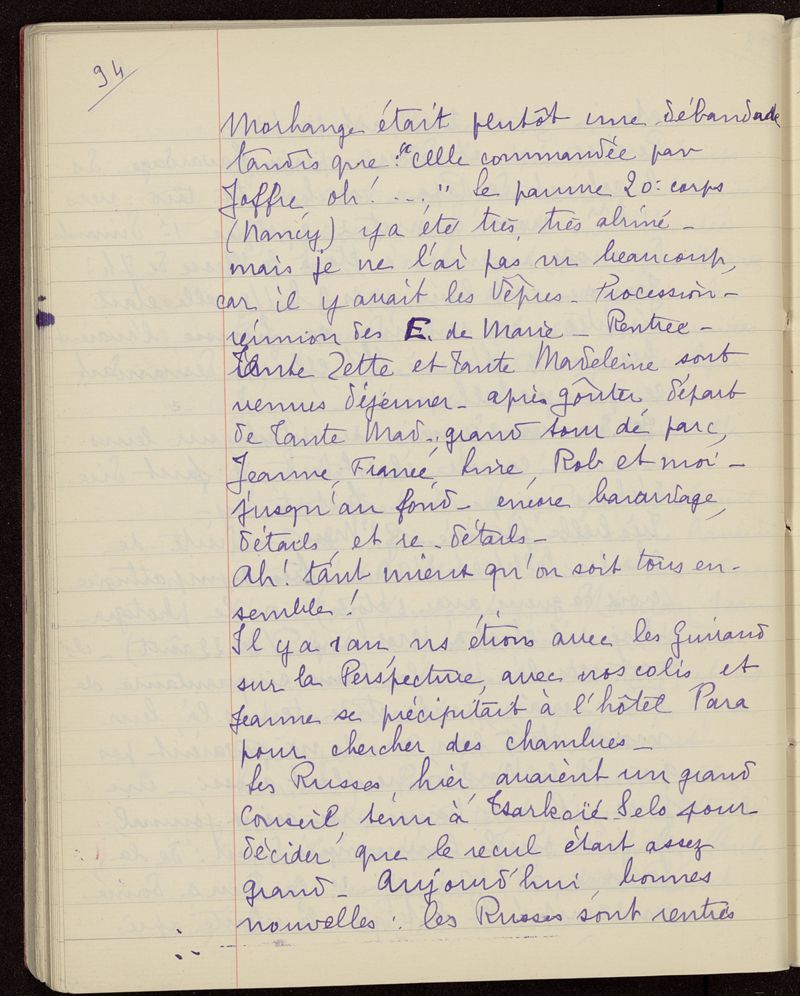 94
Morhange était plutôt une débandade
tandis que : "celle commandée par
Joffre oh! ...." Le pauvre 20e corps
(Nancy) y a été très, très abîmé -
mais je ne l'ai pas vu beaucoup,
car il y avait les Vêpres - Procession -
réunion des E. de Marie - Rentrée -
Tante Zette et Tante Madeleine sont
venues déjeuner - après goûter départ
de Tante Mad., grand tour de parc,
Jeanne, France, Rob et moi -
jusqu'au fond - encore bavardage,
détails, et re-détails -
Ah! tant mieux qu'on soit tous en-
semble!
Il y a 1 an ns étions avec les Guiraud
sur la Perspective, avec nos colis et
Jeanne se précipitait à l'hôtel Para
pour chercher des chambres -
Les Russes, hier, avaient un grand
Conseil tenu à Tsarkoïé Selo pour
décider que le recul était assez
grand - Aujourd'hui, bonnes
nouvelles : les Russes sont rentrés